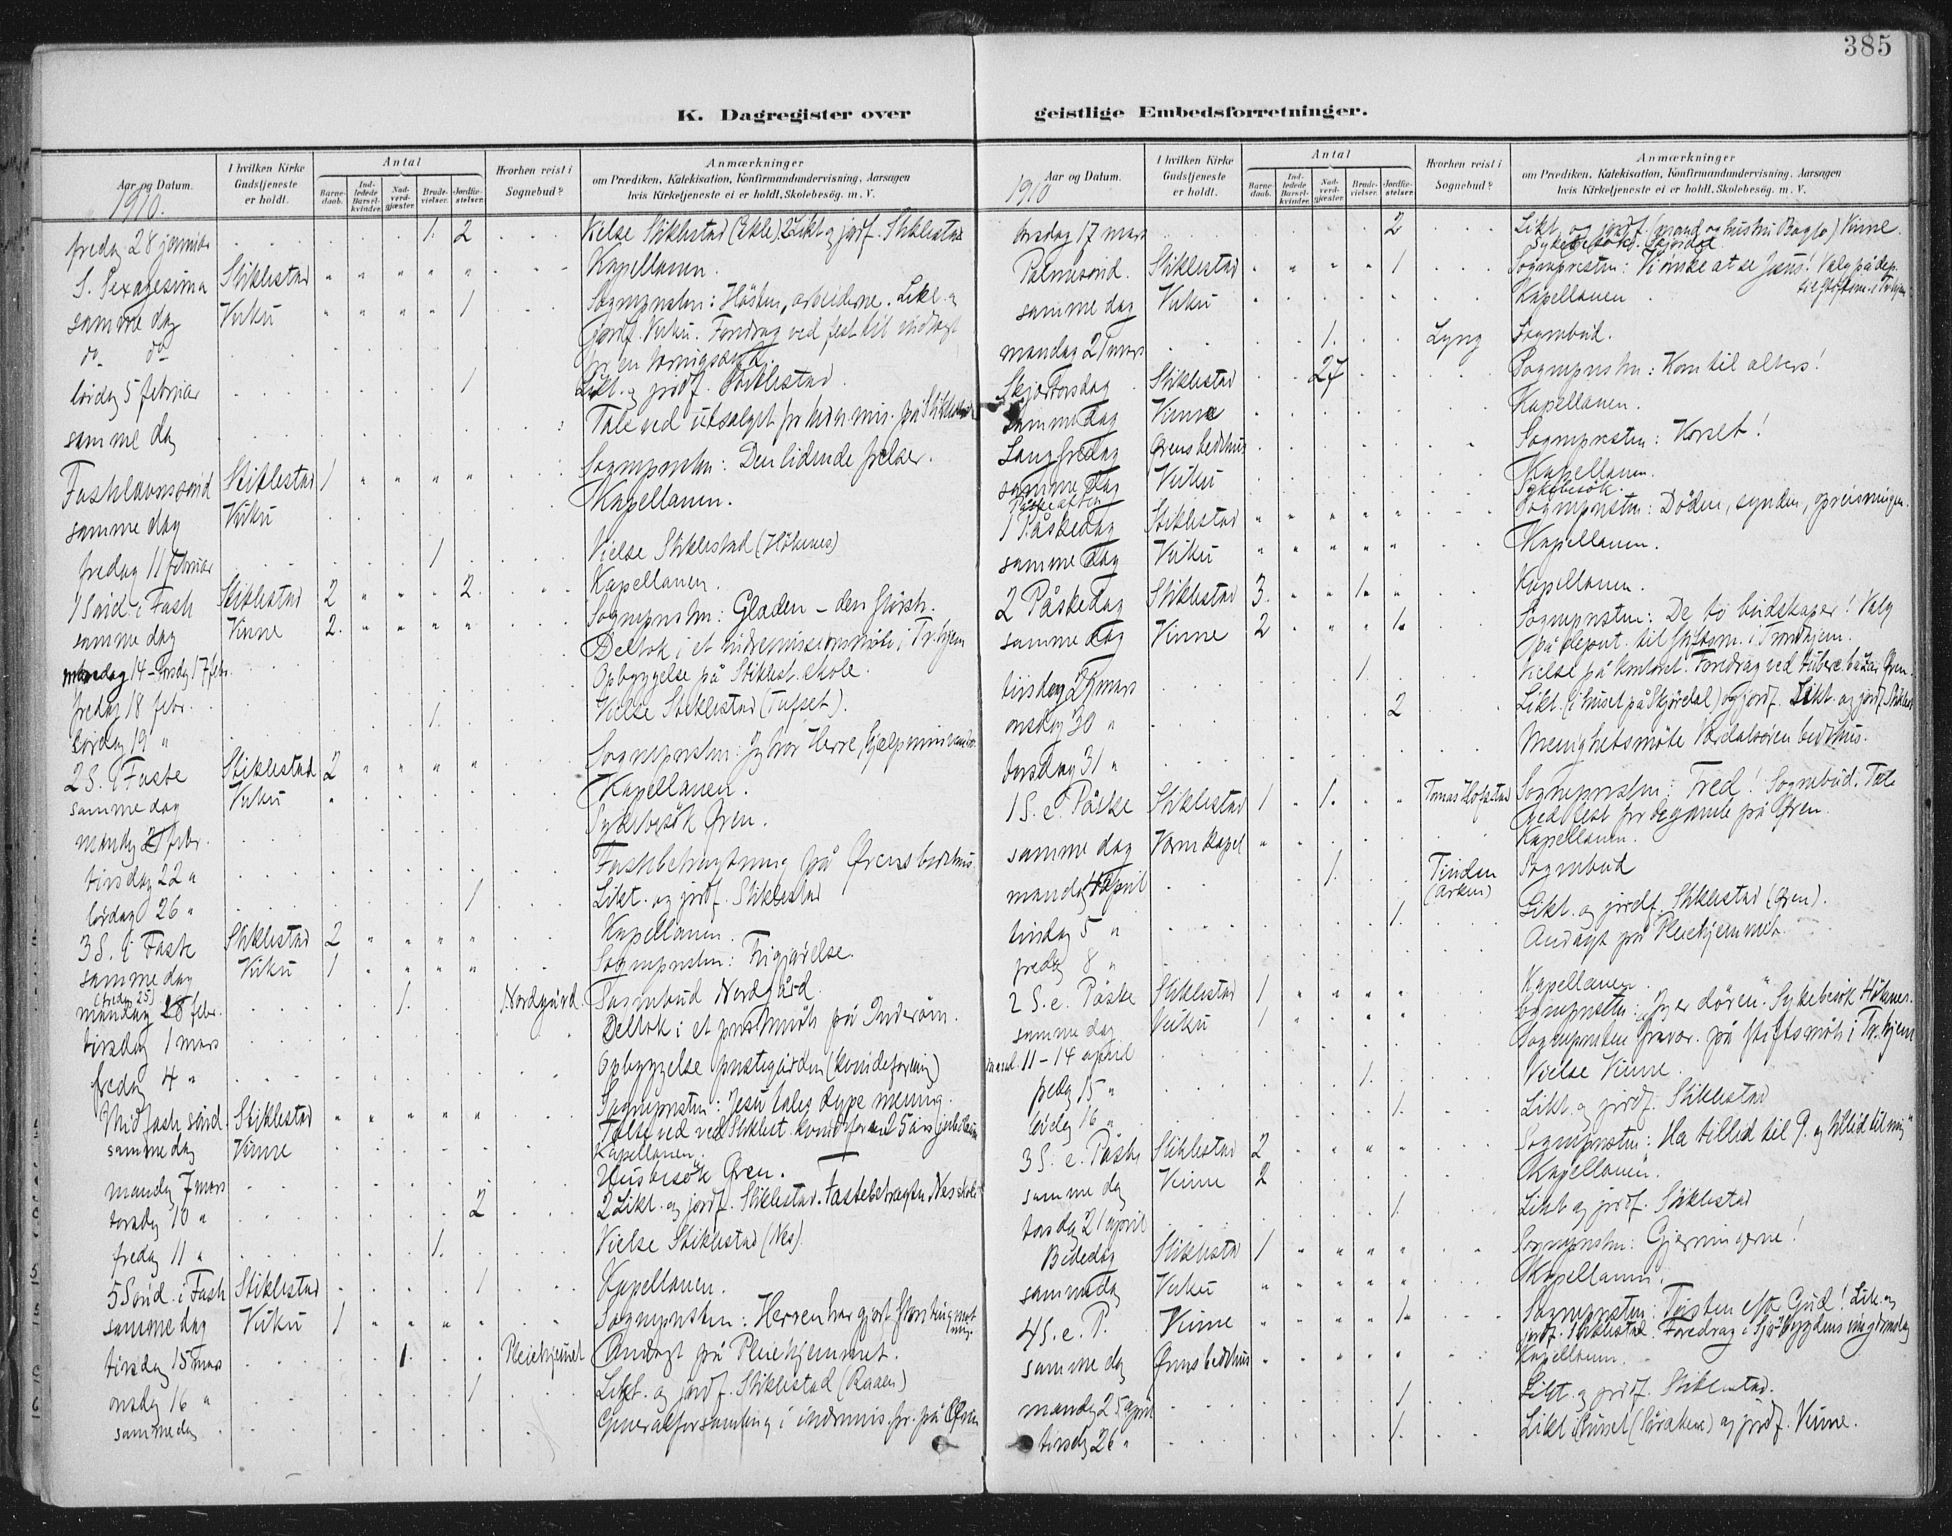 385
K. Dagregister over geistlige Embedsforretninger.
Aar og Datum.
I hvilken Kirke Gudstjeneste er holdt.
Antal
Barnedaab.
Indledede Barselkvinder.
Nadverdgjæster.
Brudevielser.
Jordfæstelser.
Hvorhen reist i Sognebud?
Anmærkninger
om Prædiken, Katekisation, Konfirmandundervisning, Aarsagen
hvis Kirketjeneste ei er holdt, Skolebesøg. m. V.
1910.
fredag 28 januar 1. 2 Vielse Stiklestad 2 Likt. og jordf. Stiklestad
S. Sexagesima Stiklestad Kapellanen.
samme dag Vuku 1 Sogneprsten: Høsten, arbeiderne. Likt. og
do do jordf. Vuku. Foredrag ved fest til indtægt
for en
lørdag 5 februar 1 Likt. og jordf. Stiklestad.
samme dag Tale ved utsalget for indremis. på Stiklestad
Fastelavnssønd Stiklestad 1 Sogneprsten: Den lidende frelser.
samme dag Vuku Kapellanen.
fredag 11 februar 1 Vielse Stiklestad (Høknes)
1 Sønd i Faste Stiklestad 2 2. Kapellanen.
samme dag Vinne 2. Sogneprsten: Glæden – den største.
mandag 14 – torsdag 17 febr. Deltok i et indremissionsmøte i Tr.hjem
fredag 18 febr. Opbyggelse på Stiklest. skole.
lørdag 19 " 1. Vielse Stiklestad (Tufset).
2 S. i Faste Stiklestad 2 Sogneprsten: Herre, hjælp min vantro.
samme dag Vuku Kapellanen.
mandag 21 febr. Sykebesøk Øren.
tirsdag 22 " Fastebetragtning på Ørens bedehus.
lørdag 26 " 1 Likt. og jordf. Stiklestad
3 S. i Faste Stiklestad 2 Kapellanen.
samme dag Vuku 1 Sogneprsten: Frigjørelse.
(fredag 25)
mandag 28 febr. 1. Nordgård Sognebud Nordgård
tirsdag 1 mars Deltok i et prestemøte på Inderøen.
fredag 4 " Opbyggelse prestegården (kvindeforening)
Midfaste sønd. Stiklestad Sogneprsten: Jesu tales dype mening.
Tale ved Stiklest. kvindefor. 25 års jubilæum
samme dag Vinne Kapellanen.
mandag 7 mars Husbesøk Øren.
torsdag 10 " 2 2 Likt. og jordf. Stiklestad. Fastebetragtn. Nes skole
fredag 11 " 1. Vielse Stiklestad (Nes).
5 Sønd. i Faste Stiklestad 1 Kapellanen.
samme dag Vuku 1 Sogneprsten: Herren har gjort store ting mot mig.
tirsdag 15 mars 1. Pleiehjemmet Andagt på Pleiehjemmet.
onsdag 16 " 1 Likt. og jordf. Stiklestad (Raaen)
samme dag Generalforsamling i indremis. for. på Øren
Aar og Datum.
I hvilken Kirke Gudstjeneste er holdt.
Antal
Barnedaab.
Indledede Barselkvinder.
Nadverdgjæster.
Brudevielser.
Jordfæstelser.
Hvorhen reist i Sognebud?
Anmærkninger
om Prædiken, Katekisation, Konfirmandundervisning, Aarsagen
hvis Kirketjeneste ei er holdt, Skolebesøg. m. V.
1910
torsdag 17 mars 2 Likt. og jordf. (mand og hustru) Vinne.
Sykebesøk Skjørdal
Palmesønd. Stiklestad 1 Sogneprsten: Vi ønske at se Jesus! Valg på dep.
til stiftsm. i Tr.hjem
samme dag Vuku Kapellanen.
mandag 21 mars 1. Lyng Sognebud.
Skjærtorsdag Stiklestad 27 Sogneprsten: Kom til alters!
samme dag Vinne Kapellanen.
Langfredag Ørens bedehus Sogneprsten: Korset!
samme dag Vuku Kapellanen.
Påskeaften Sykebesøk.
1 Påskedag Stiklestad Sogneprsten: Døden, synden, opreisningen.
samme dag Vuku Kapellanen.
2 Påskedag Stiklestad 3. 1. Kapellanen.
samme dag Vinne 2 1. Sogneprsten: De to budskaper! Valg
på deput. til stiftsm. i Trondhjem.
tirsdag 29 mars 1. Vielse på kontoret. Foredrag ved tuberc.bazar Øren.
onsdag 30 " 2 Likt. (i huset på Skjørdal) og jordf. Likt. og jordf. Stiklest.
torsdag 31 " Menighetsmøte Værdalsøren bedehus.
1 S. e. Påske Stiklestad 1 1. Tomas Hofstad Sogneprsten: Fred! Sognebud. Tale
ved fest for de gamle på Øren.
samme dag Værn kapel Kapellanen.
mandag 4 april 1. Tinden (arken) Sognebud
tirsdag 5 " 1. Likt. og jordf. Stiklestad (Øren).
fredag 8 " Andagt på Pleiehjemmet.
2 S. e. Påske Stiklestad 1 Kapellanen.
samme dag Vuku 1 Sogneprsten: "Jeg er døren." Sykebesøk Høknes.
mand. 11 – 14 april Sogneprsten fravær. på stiftsmøte i Tr.hjem
fredag 15 " 1. Vielse Vinne.
lørdag 16 " 1. Likt. og jordf. Stiklestad
3 S. e. Påske Stiklestad 2 Sogneprsten: "Ha tillid til G. og tillid til mig"
samme dag Vinne 2 Kapellanen.
torsdag 21 april 1. Likt. og jordf. Stiklestad
Bededag Stiklestad 1 Sogneprsten: Gjerningerne!
samme dag Vuku Kapellanen.
4 S. e. P. Vinne 1. Sogneprsten: Tørsten efter Gud! Likt. og
jordf. Stiklestad. Foredrag i Sjøbygdens ungdomslag
samme dag Ørens bedehus Kapellanen.
mandag 25 april 1 Likt. og jordf. Stiklestad.
tirsdag 26 " 1. Likt. i huset og jordf. Vinne.